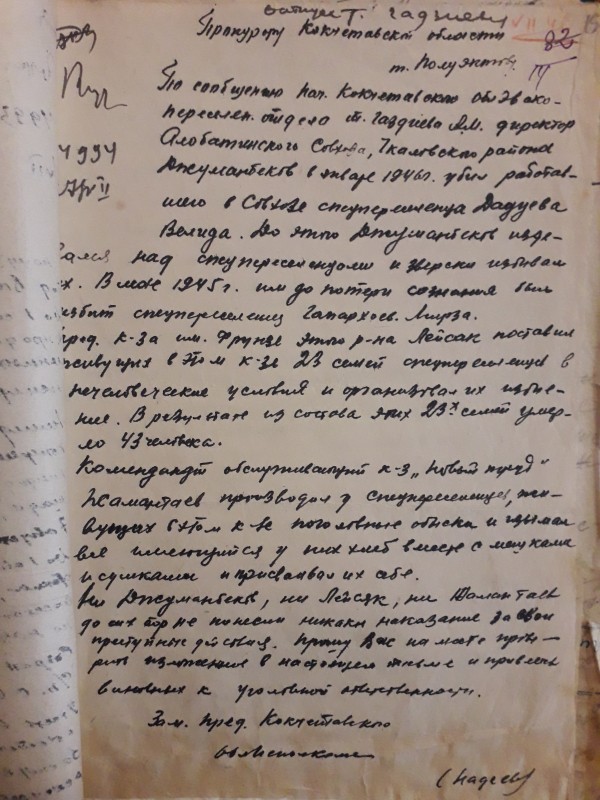 Т. Гадзиеву
Прокурору Кокчетавской области
т. Полуэктову
82
По сообщению нач. Кокчетавского обл. Эвако-
переселен. отдела т. Газдиева А.М. директор
Алобатинского Совхоза, Чкаловского района
Джумантеков в январе 1946 г. убил работав-
шего в Совхозе спецпереселенца Дадуева
Велида. До этого Джумантеков изде-
вался над спецпереселенцами и зверски избивал
их. В мае 1945 г. им до потери сознания был
избит спецпереселенец Гапархоев Мирза.
Пред. к-за им. Фрунзе этого р-на Лейсак поставил
живущих в этом к-зе 23 семей спецпереселенцев в
нечеловеческие условия и организовал их избие-
ние. В результате из состава этих 23х семей умер-
ло 43 человека.
Комендант обслуживающий к-з „Новый труд"
Жамантаев производил у спецпереселенцев, жи-
вущих в этом к-зе поголовные обыски и изымал
все имеющийся у них хлеб вместе с мешками
и сумками и присваивал их себе.
Ни Джумантеков, ни Лейсяк, ни Жамантаев
до сих пор не понесли никаких наказание за свои
преступные действия. Прошу Вас на месте прове-
рить изложенное в настоящем письме и привлечь
виновных к уголовной ответственности.
Зам. пред. Кокчетавского
облисполкома
(Надеев)